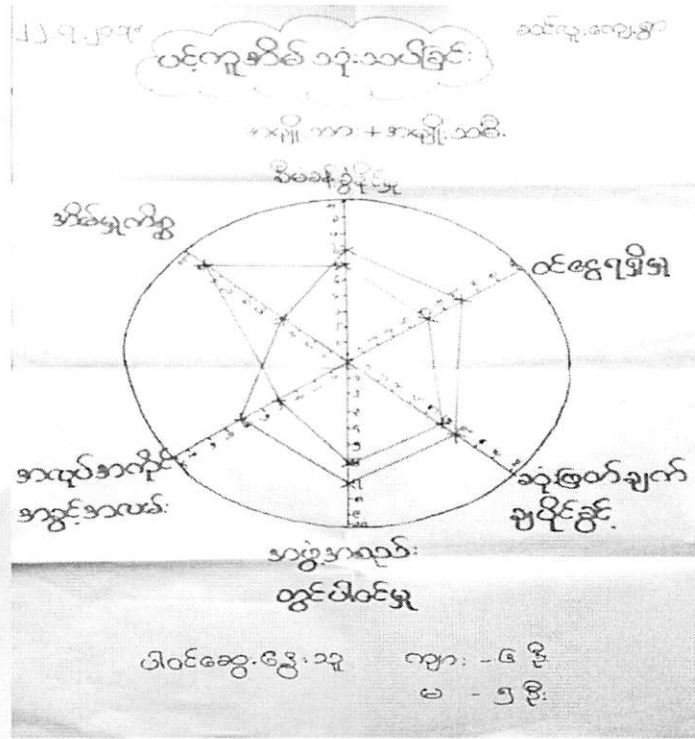 ပင့်ကူအိမ် သုံးသပ်ခြင်း
အမျိုးသား + အမျိုးသမီး
စီမံခန့်ခွဲနိုင်မှု
အိမ်မှုကိစ္စ
ဝင်ငွေရရှိမှု
အလုပ်အကိုင်
အခွင့်အလမ်း
ဆုံးဖြတ်ချက်
ချပိုင်ခွင့်
အဖွဲ့အစည်း
တွင်ပါဝင်မှု
ပါဝင်ဆွေးနွေးသူ ကျား - ၆ ဦး
မ - ၅ ဦး